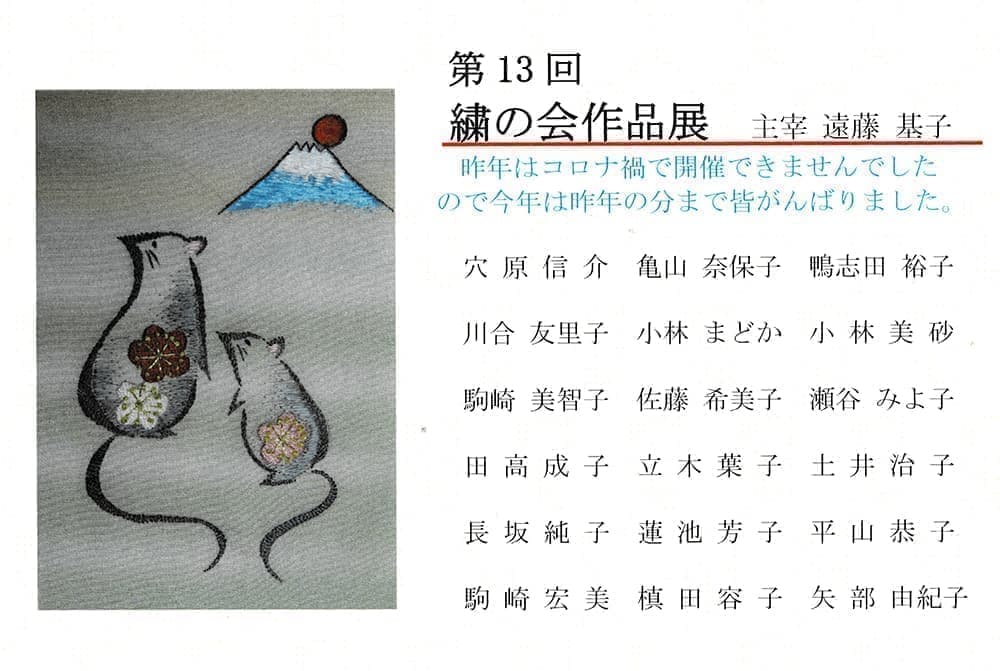 第 13 回
繍の会作品展 主宰 遠藤 基子
昨年はコロナ禍で開催できませんでした
ので今年は昨年の分まで皆がんばりました。
穴 原 信 介 亀山 奈保子 鴨志田 裕子
川合 友里子 小林 まどか 小 林 美 砂
駒崎 美智子 佐藤 希美子 瀬谷 みよ子
田 高 成 子 立 木 葉 子 土 井 治 子
長 坂 純 子 蓮 池 芳 子 平 山 恭 子
駒 崎 宏 美 槙 田 容 子 矢 部 由紀子